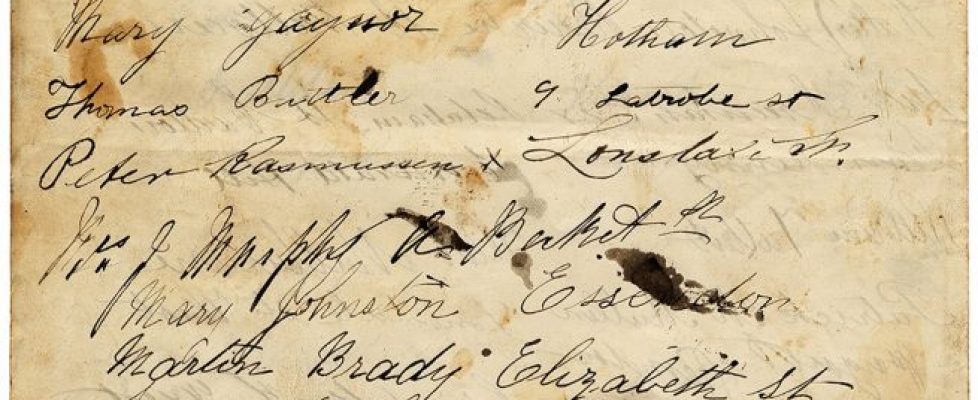 Mary Gaynor Hotham
Thomas Buttler 9 Latrobe st
Peter Rasmussen Lonsdale St.
Mrs J Murphy Becket St
Mary Johnston Essendon
Martin Brady Elizabeth St